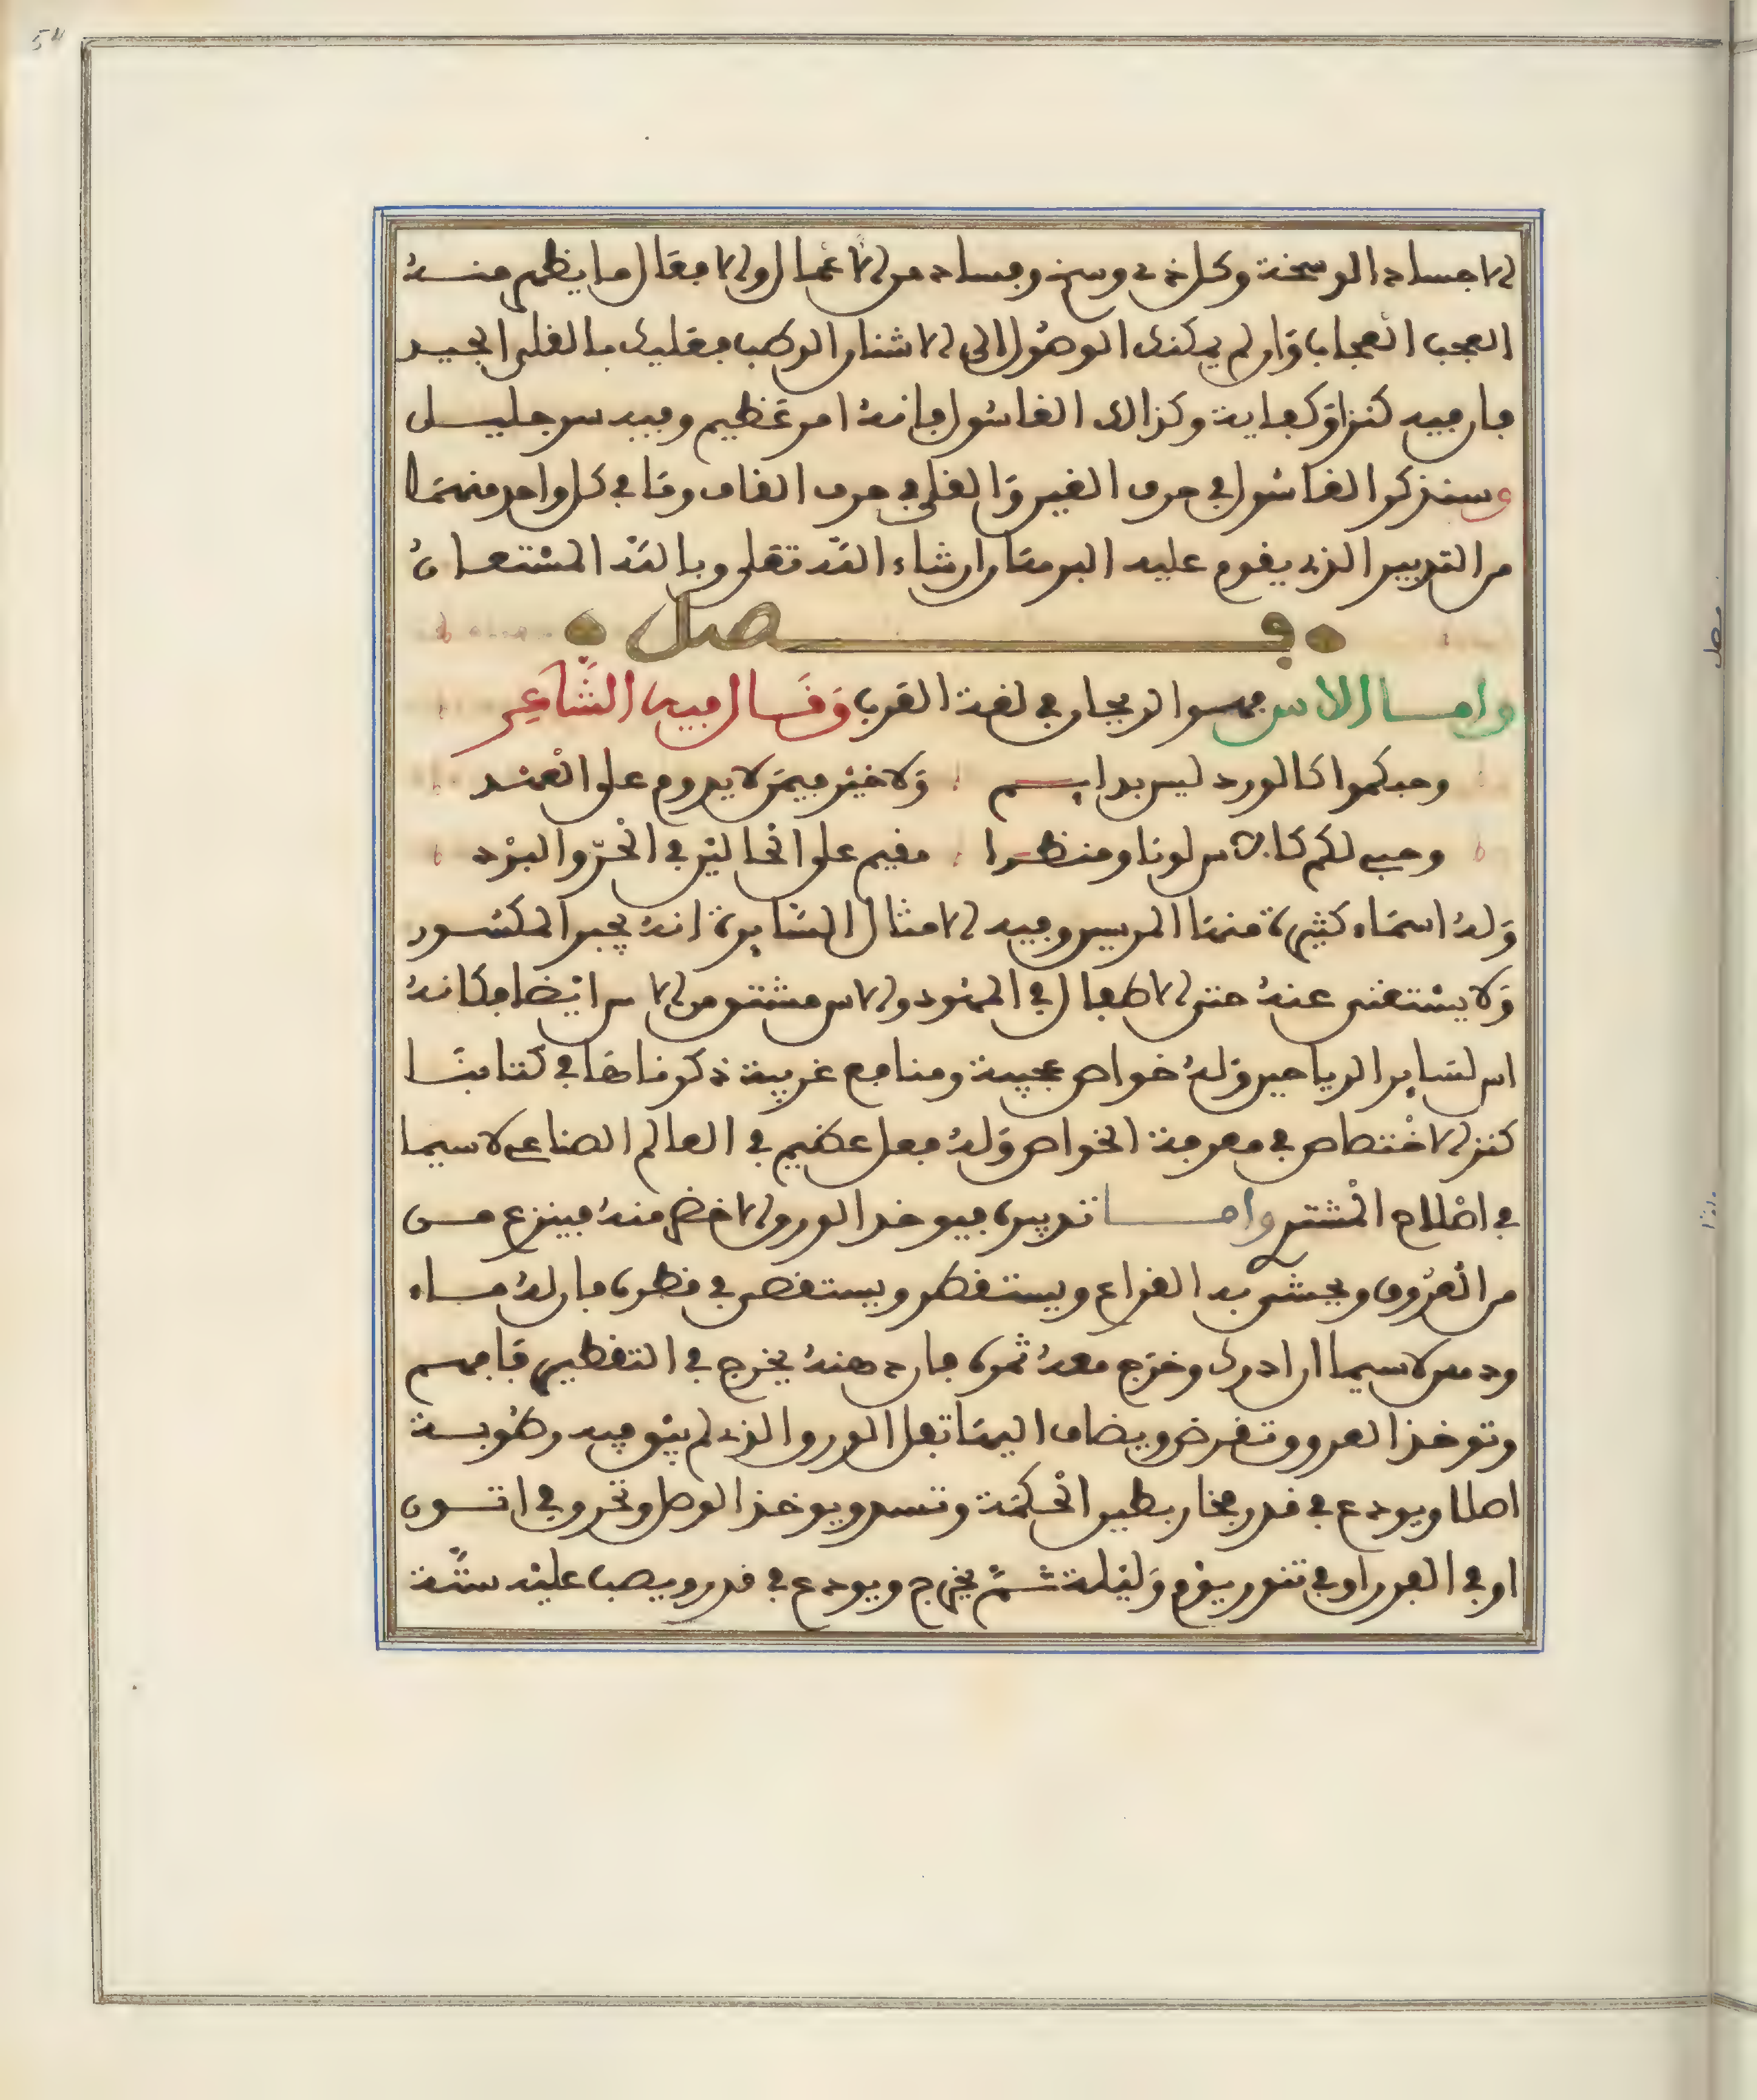 الاجساد الوسخة وكل ذي وسخ وفساد من الاعمال والافعال ما يظهر منه
العجب العجاب وان لم يمكنك الوصول الى الاشنان الرطب فعليك بالقلي الجيد
فان فيه كنزا وكفاية وكذالك الغاسول فانه امر عظيم وفيه سر جليل
وسنذكر الغاسول في حرف الغين والقلي في حرف القاف وما في كل واحد منهما
من التدبير الذي يقوم عليه البرهان ان شاء الله تعلى وبالله المستعان
فصل
واما الاس فهو الريحان في لغة العرب وقال فيه الشاعر
وحبكموا كالورد ليس بدايم ولا خير فيمن لا يدوم على العهد
وحبي لكم كالاس لونا ومنظرا مقيم على الحالين في الحر والبرد
وله اسماء كثيرة منها المرسين وفيه الامثال السايرة انه يجبر المكسور
ولا يستغنى عنه حتى الاطفال في المهود والاس مشتق من الاس ايضا فكانه
اس لساير الرياحين وله خواص عجيبة ومنافع غريبة ذكرناها في كتابنا
كنز الاختصاص في معرفة الخواص وله فعل عظيم في العالم الصناعي لاسيما
في اصلاح المشتري واما تدبيره فيوخذ الورق الاخضر منه فينزع من
من العروق ويحشى به القراع ويستقطر ويستقصى في قطره فان له ماء
ودهن لاسيما ان ادرك وخرج معه ثمره فان دهنه يخرج في التقطير فافهم
وتوخذ العروق وتقرض ويضاف اليها ثفل الورق الذي لم يبق فيه رطوبة
اصلا ويودع في قدر فخار بطين الحكمة وتسد ويوخذ الوصل وتحرق في اتون
او في الفرن او في تنور يوم وليلة ثم يخرج ويودع في قدر ويصب عليه ستة